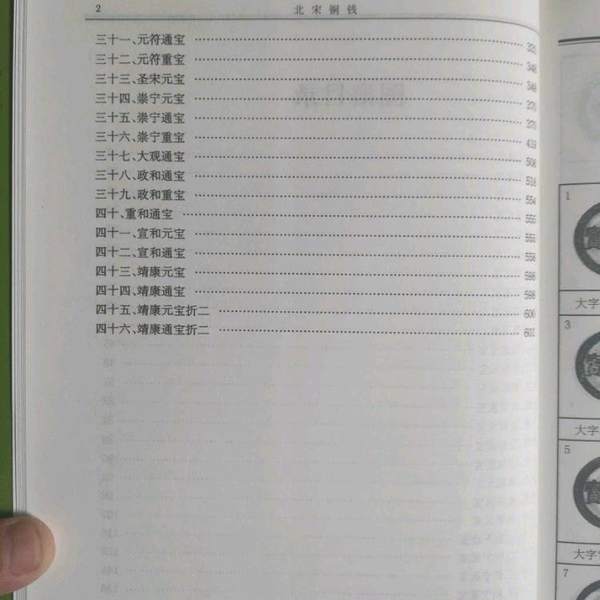 2 北宋铜钱
三十一、元符通宝
三十二、元符重宝
三十三、圣宋元宝
三十四、崇宁元宝
三十五、崇宁通宝
三十六、崇宁重宝 419
三十七、大观通宝 508
三十八、政和通宝 514
三十九、政和重宝 554
四十、重和通宝 555
四十一、宣和元宝 555
四十二、宣和通宝 558
四十三、靖康元宝 598
四十四、靖康通宝 598
四十五、靖康元宝折二 600
四十六、靖康通宝折二 601
1
大字
3
大字
5
大字
7